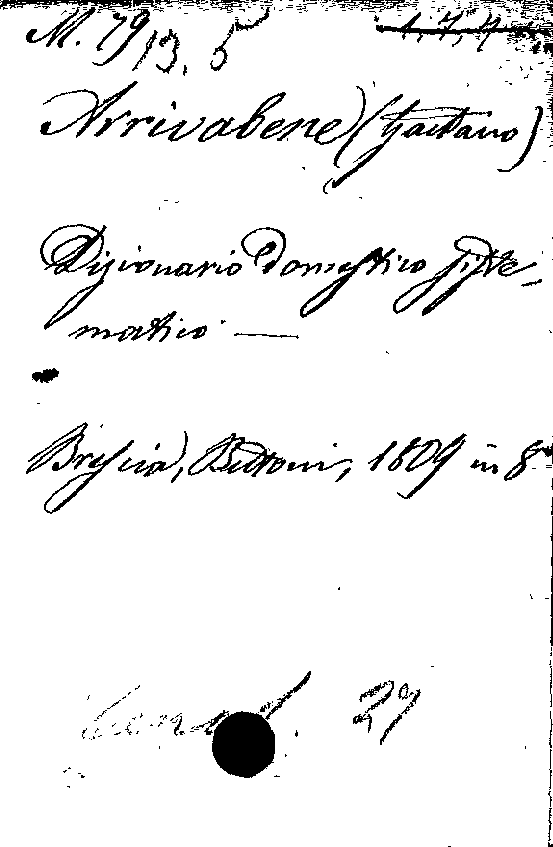 M. 79
13. 5
1, 7, 4
Arrivabene (Gaetano)
Dizionario Domestico siste-
matico —
Brescia, Bettoni, 1809 in 8º
29